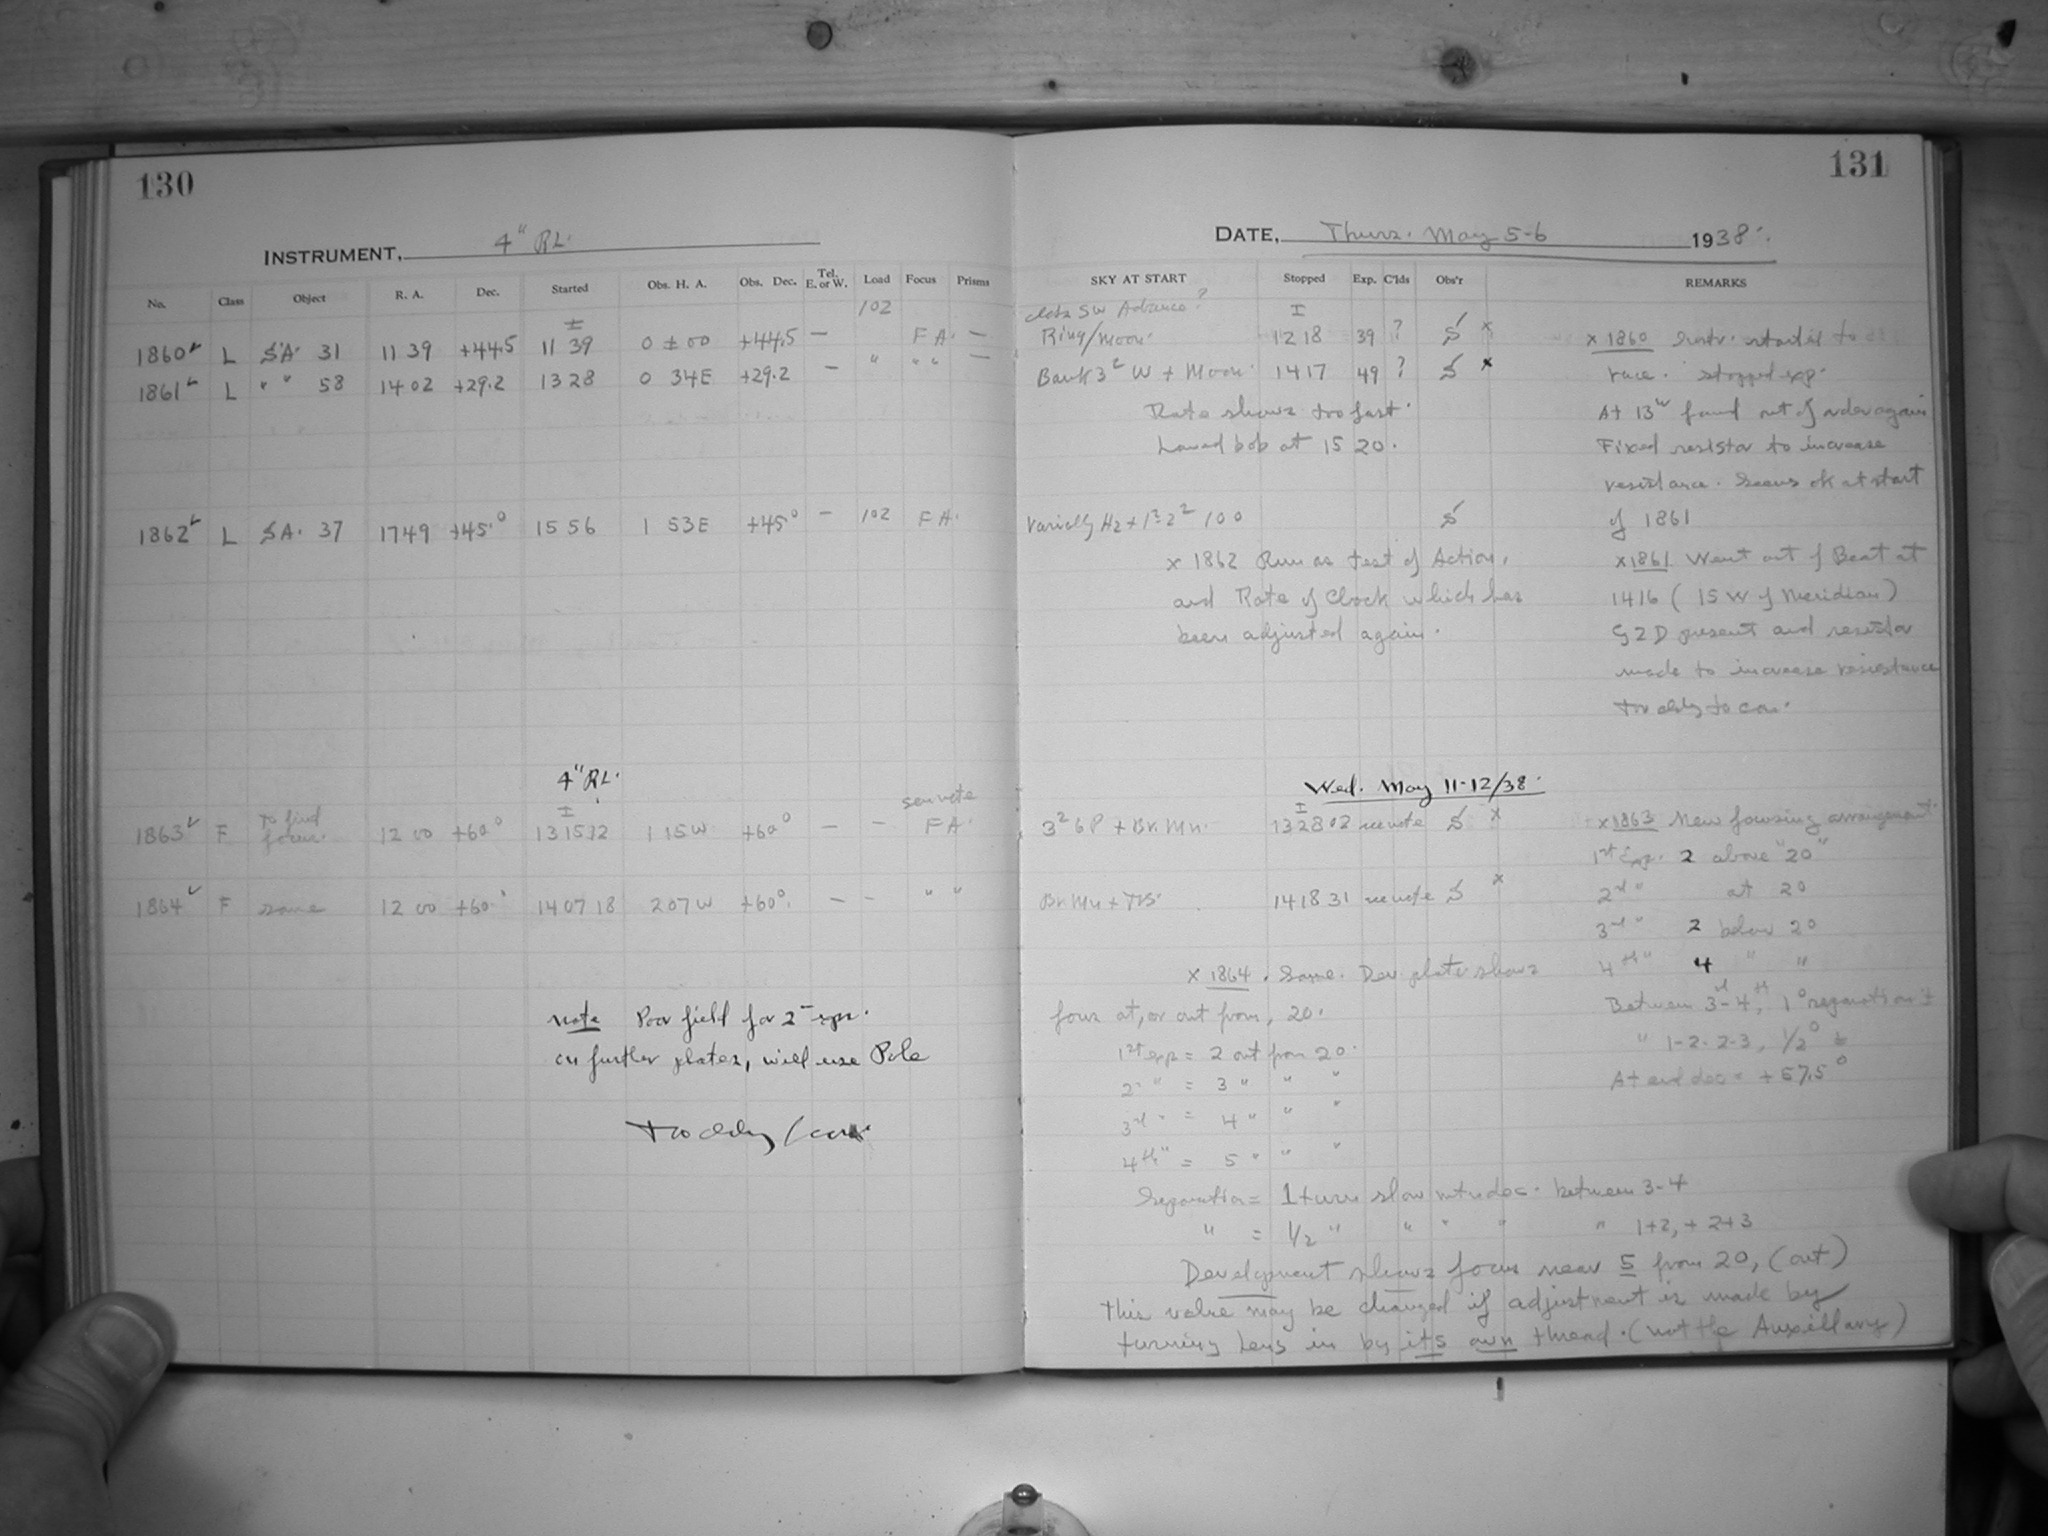 130
INSTRUMENT, 4" RL.
No. Class Object R. A. Dec. Started Obs. H. A. Obs. Dec. Tel. E. or W. Load Focus Prisms
102
1860 L S.A. 31 11 39 +44.5 11 39 0 ± 00 +44.5 — F A. —
1861 L " " 58 14 02 +29.2 13 28 0 34E +29.2 — " " " —
1862 L S.A. 37 1749 +45.° 15 56 1 53E +45° — 102 F A.
4" RL.
1863 F To find focus. 12 00 +60° 13 15 12 1 15W +60° — — see note F A.
1864 F same 12 00 +60° 14 07 18 2 07W +60°. — — " "
Note Poor field for 2 exps.
on further plates, will use Pole
131
DATE, Thurs. May 5-6 1938.
SKY AT START Stopped Exp. C'lds Obs'r REMARKS
Ring/Moon. 12 18 39 ? S x
Bank 3² W + Moon. 1417 49 ? S x
Rate shows too fast.
bob at 15 20.
H2 + 1² 2² 100 S
x 1862 Run as test of Action,
and Rate of Clock which has
been adjusted again.
x 1860 Instr. started to
race. Stopped exp.
At 13h found out of order again
Fixed resistor to increase
resistance. Seems ok at start
of 1861
x 1861 Went out of Beat at
1416 ( 15 W of Meridian )
present and resistor
made to increase resistance
Wed. May 11-12/38.
3² 6P + Br. Mn. 13 28 02 see note S x
Br. Mn + 14 18 31 see note S x
x 1863 New focusing arrangement.
1st Exp. 2 above "20"
2nd " at 20
3rd " 2 below 20
4th " 4 " "
Between 3rd-4th, 1° separation ±
" 1-2. 2-3, 1/2° ±
At end dec = +57.5°
x 1864. Same. Dev. plate shows
focus at, or out from, 20.
1st exp = 2 out from 20.
2nd " = 3 " " "
3rd " = 4 " " "
4th " = 5 " " "
Separation = 1 turn slow mtn dec. between 3-4
" = 1/2 " " " " " 1+2, + 2+3
Development shows focus near 5 from 20, (out)
This value may be changed if adjustment is made by
turning lens in by its own thread. (not the Auxillary)